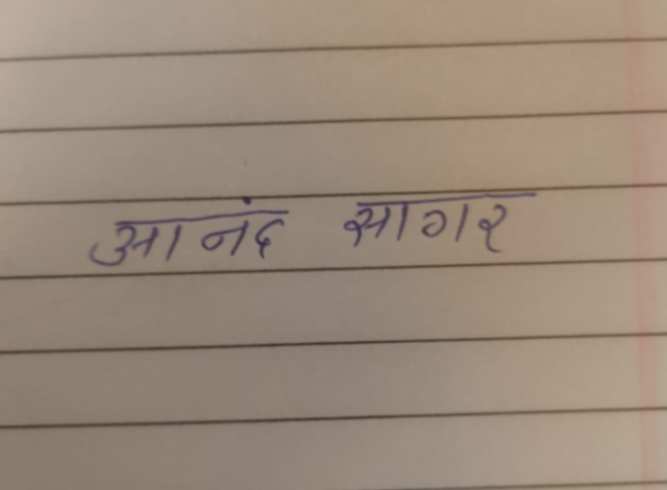 आनंद सागर